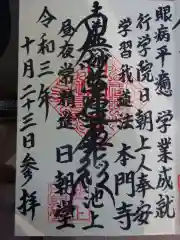 眼病平癒 学業成就
行学院日朝上人奉安
学習我道法 本門寺
南無妙法蓮華経 池上
昼夜常精進 日朝堂
令和三年
十月二十三日参拝